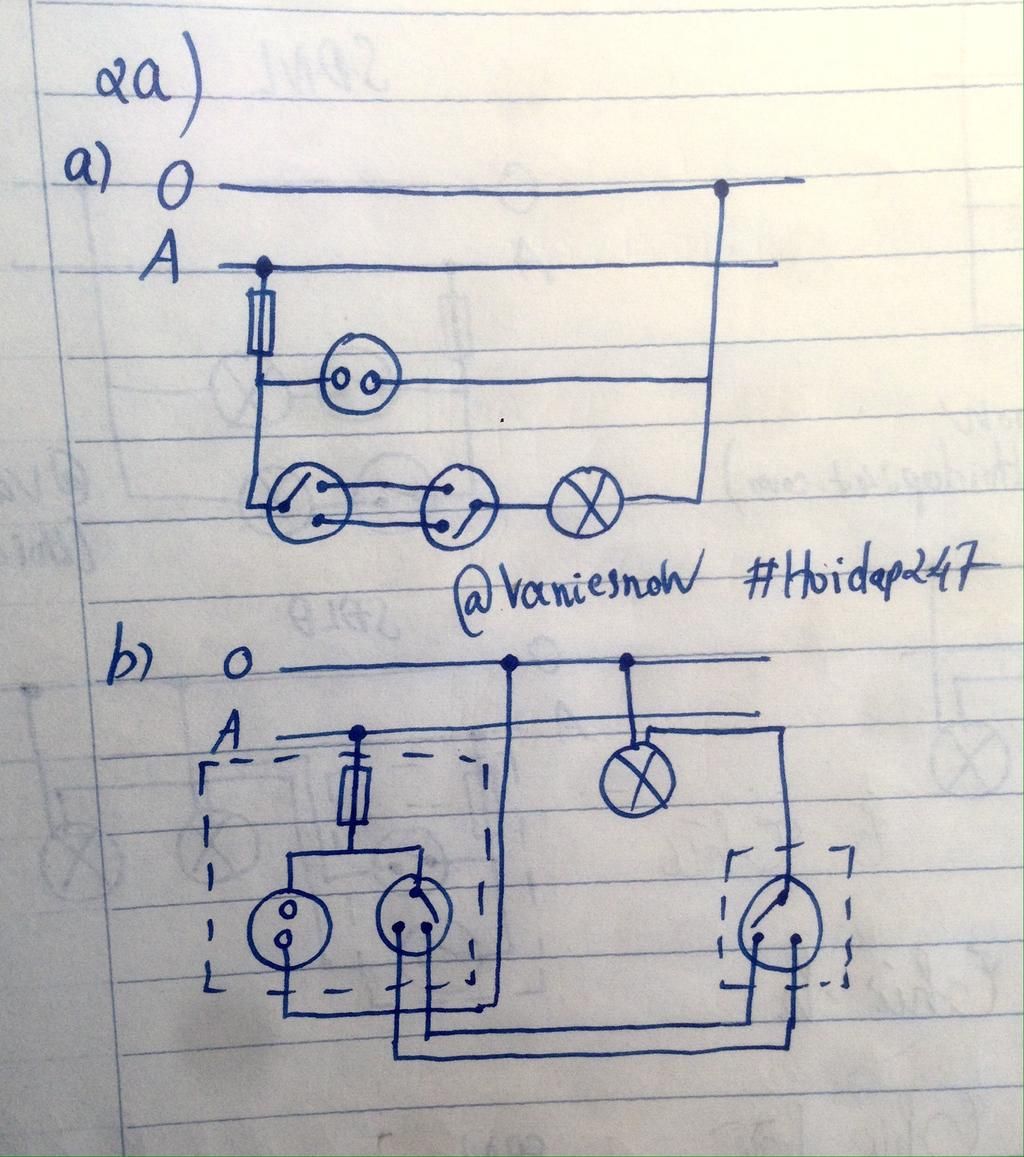 2a)
a) O
A
@vaniesnow #Hoidap247
b) O
A